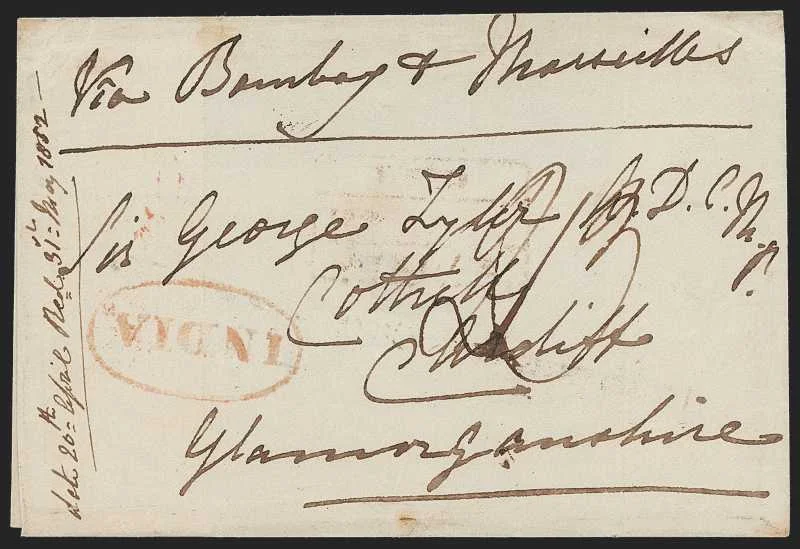 Via Bombay & Marseilles
Sir George Tyler K. D. C. M.P.
Cottrell
Cardiff
Glamorganshire
INDIA
date 20th April Recd 31st May 1852